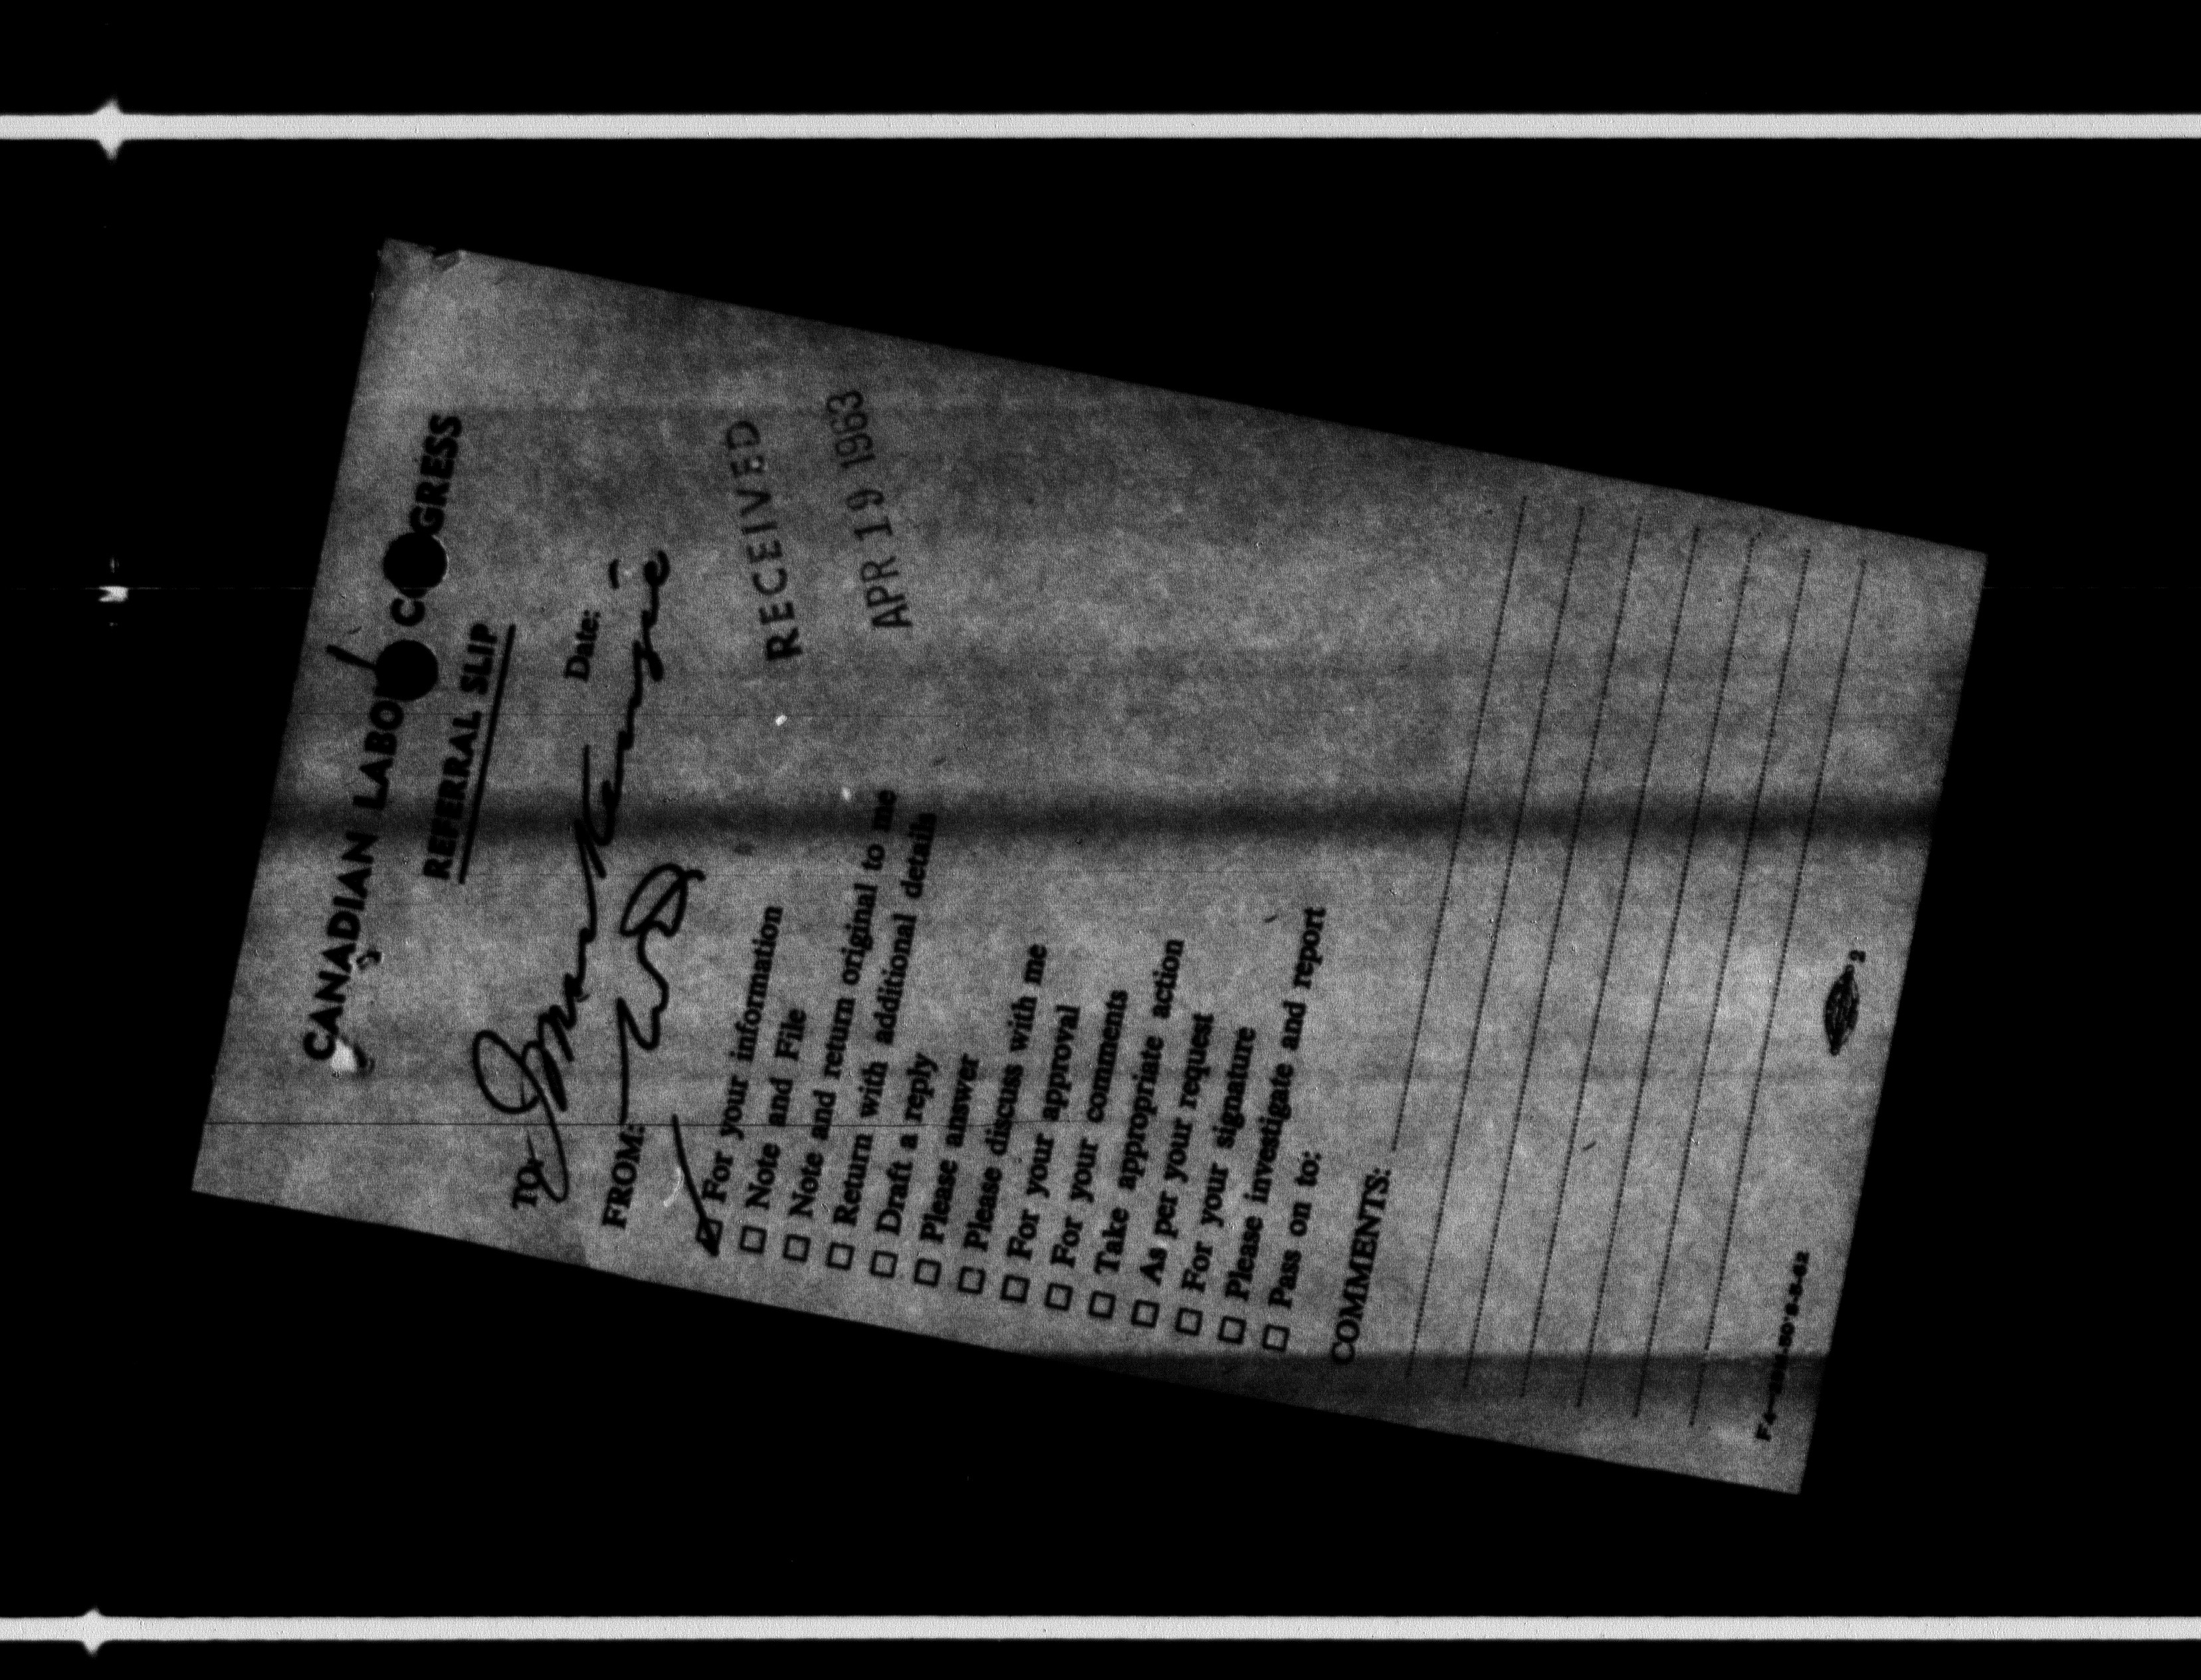 CANADIAN LABO C GRESS
REFERRAL SLIP
TO: Date:
FROM:
RECEIVED
APR 19 1963
For your information
Note and File
Note and return original to me
Return with additional details
Draft a reply
Please answer
Please discuss with me
For your approval
For your comments
Take appropriate action
As per your request
For your signature
Please investigate and report
Pass on to:
COMMENTS:
2